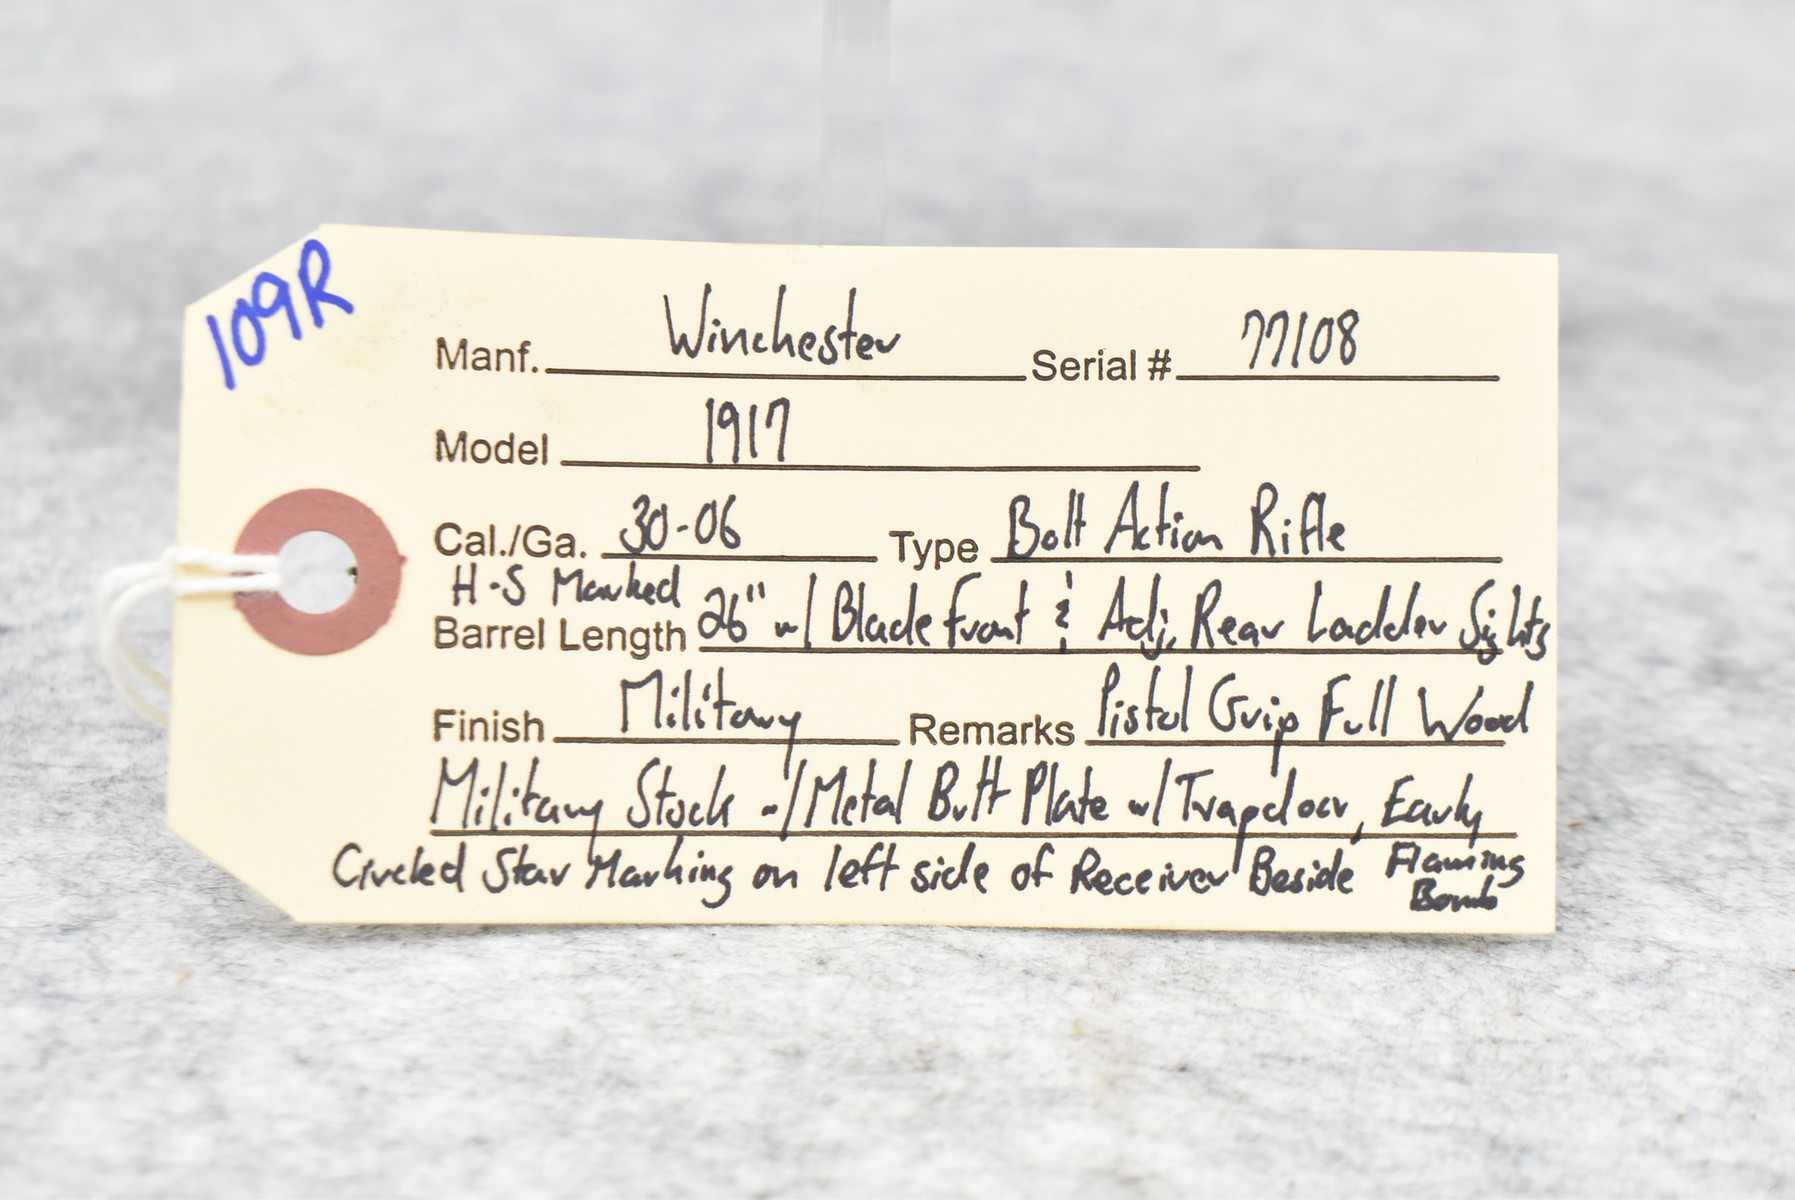 109R
Manf. Winchester Serial # 77108
Model 1917
Cal./Ga. 30-06 Type Bolt Action Rifle
H-S Marked
Barrel Length 26" w/ Blade Front & Adj. Rear Ladder Sights
Finish Military Remarks Pistol Grip Full Wood
Military Stock w/ Metal Butt Plate w/ Trapdoor, Early
Circled Star Marking on left side of Receiver Beside Flaming
Bomb